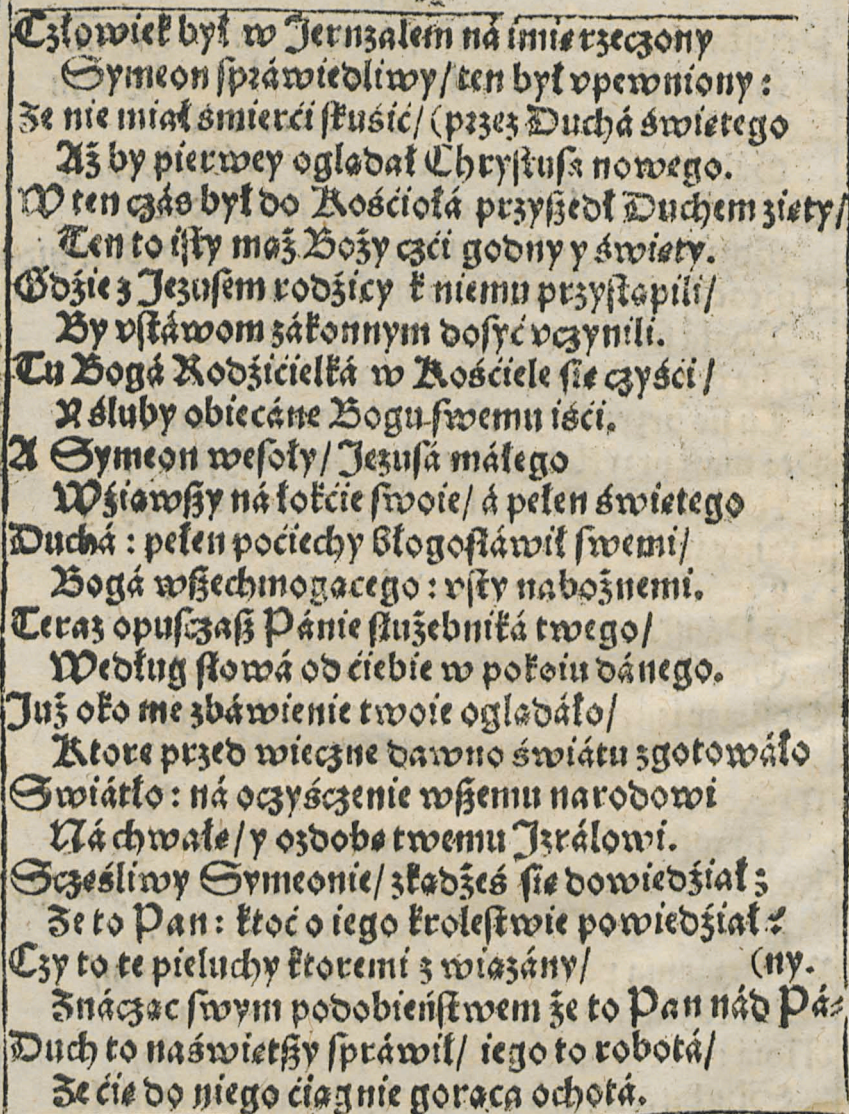 Człowiek był w Jeruzalem ná imię rzeczony
Symeon spráwiedliwy/ ten był vpewniony:
Że nie miał śmierći skuśić/ (przez Duchá świętego
Aż by pierwey oglądał Chrystusa nowego.
W ten czás był do Kośćiołá przyszedł Duchem zięty/
Ten to isty mąż Boży czći godny y święty.
Gdźie z Jezusem rodźicy k niemu przystąpili/
By vstáwom zákonnym dosyć vczynili.
Tu Bogá Rodźićielká w Kośćiele się czyśći/
Y śluby obiecáne Bogu swemu iśći.
A Symeon wesoły/ Jezusá máłego
Wźiąwszy ná łokćie swoie/ á pełen świętego
Duchá: pełen poćiechy błogosłáwił swemi/
Bogá wszechmogącego: vsty nabożnemi.
Teraz opusczasz Pánie służebniká twego/
Według słowá od ćiebie w pokoiu dánego.
Już oko me zbáwienie twoie oglądáło/
Ktore przed wieczne dawno świátu zgotowáło
Swiátło: ná oczyśczenie wszemu narodowi
Ná chwałę/ y ozdobę twemu Jzrálowi.
Sczęśliwy Symeonie/ zkądżeś się dowiedźiał;
Że to Pan: ktoć o iego krolestwie powiedźiał?
Czy to te pieluchy ktoremi z wiązány/ (ny.
Znácząc swym podobieństwem że to Pan nád Pá⸗
Duch to naświętszy spráwił/ iego to robotá/
Że ćię do niego ćiągnie gorąca ochotá.